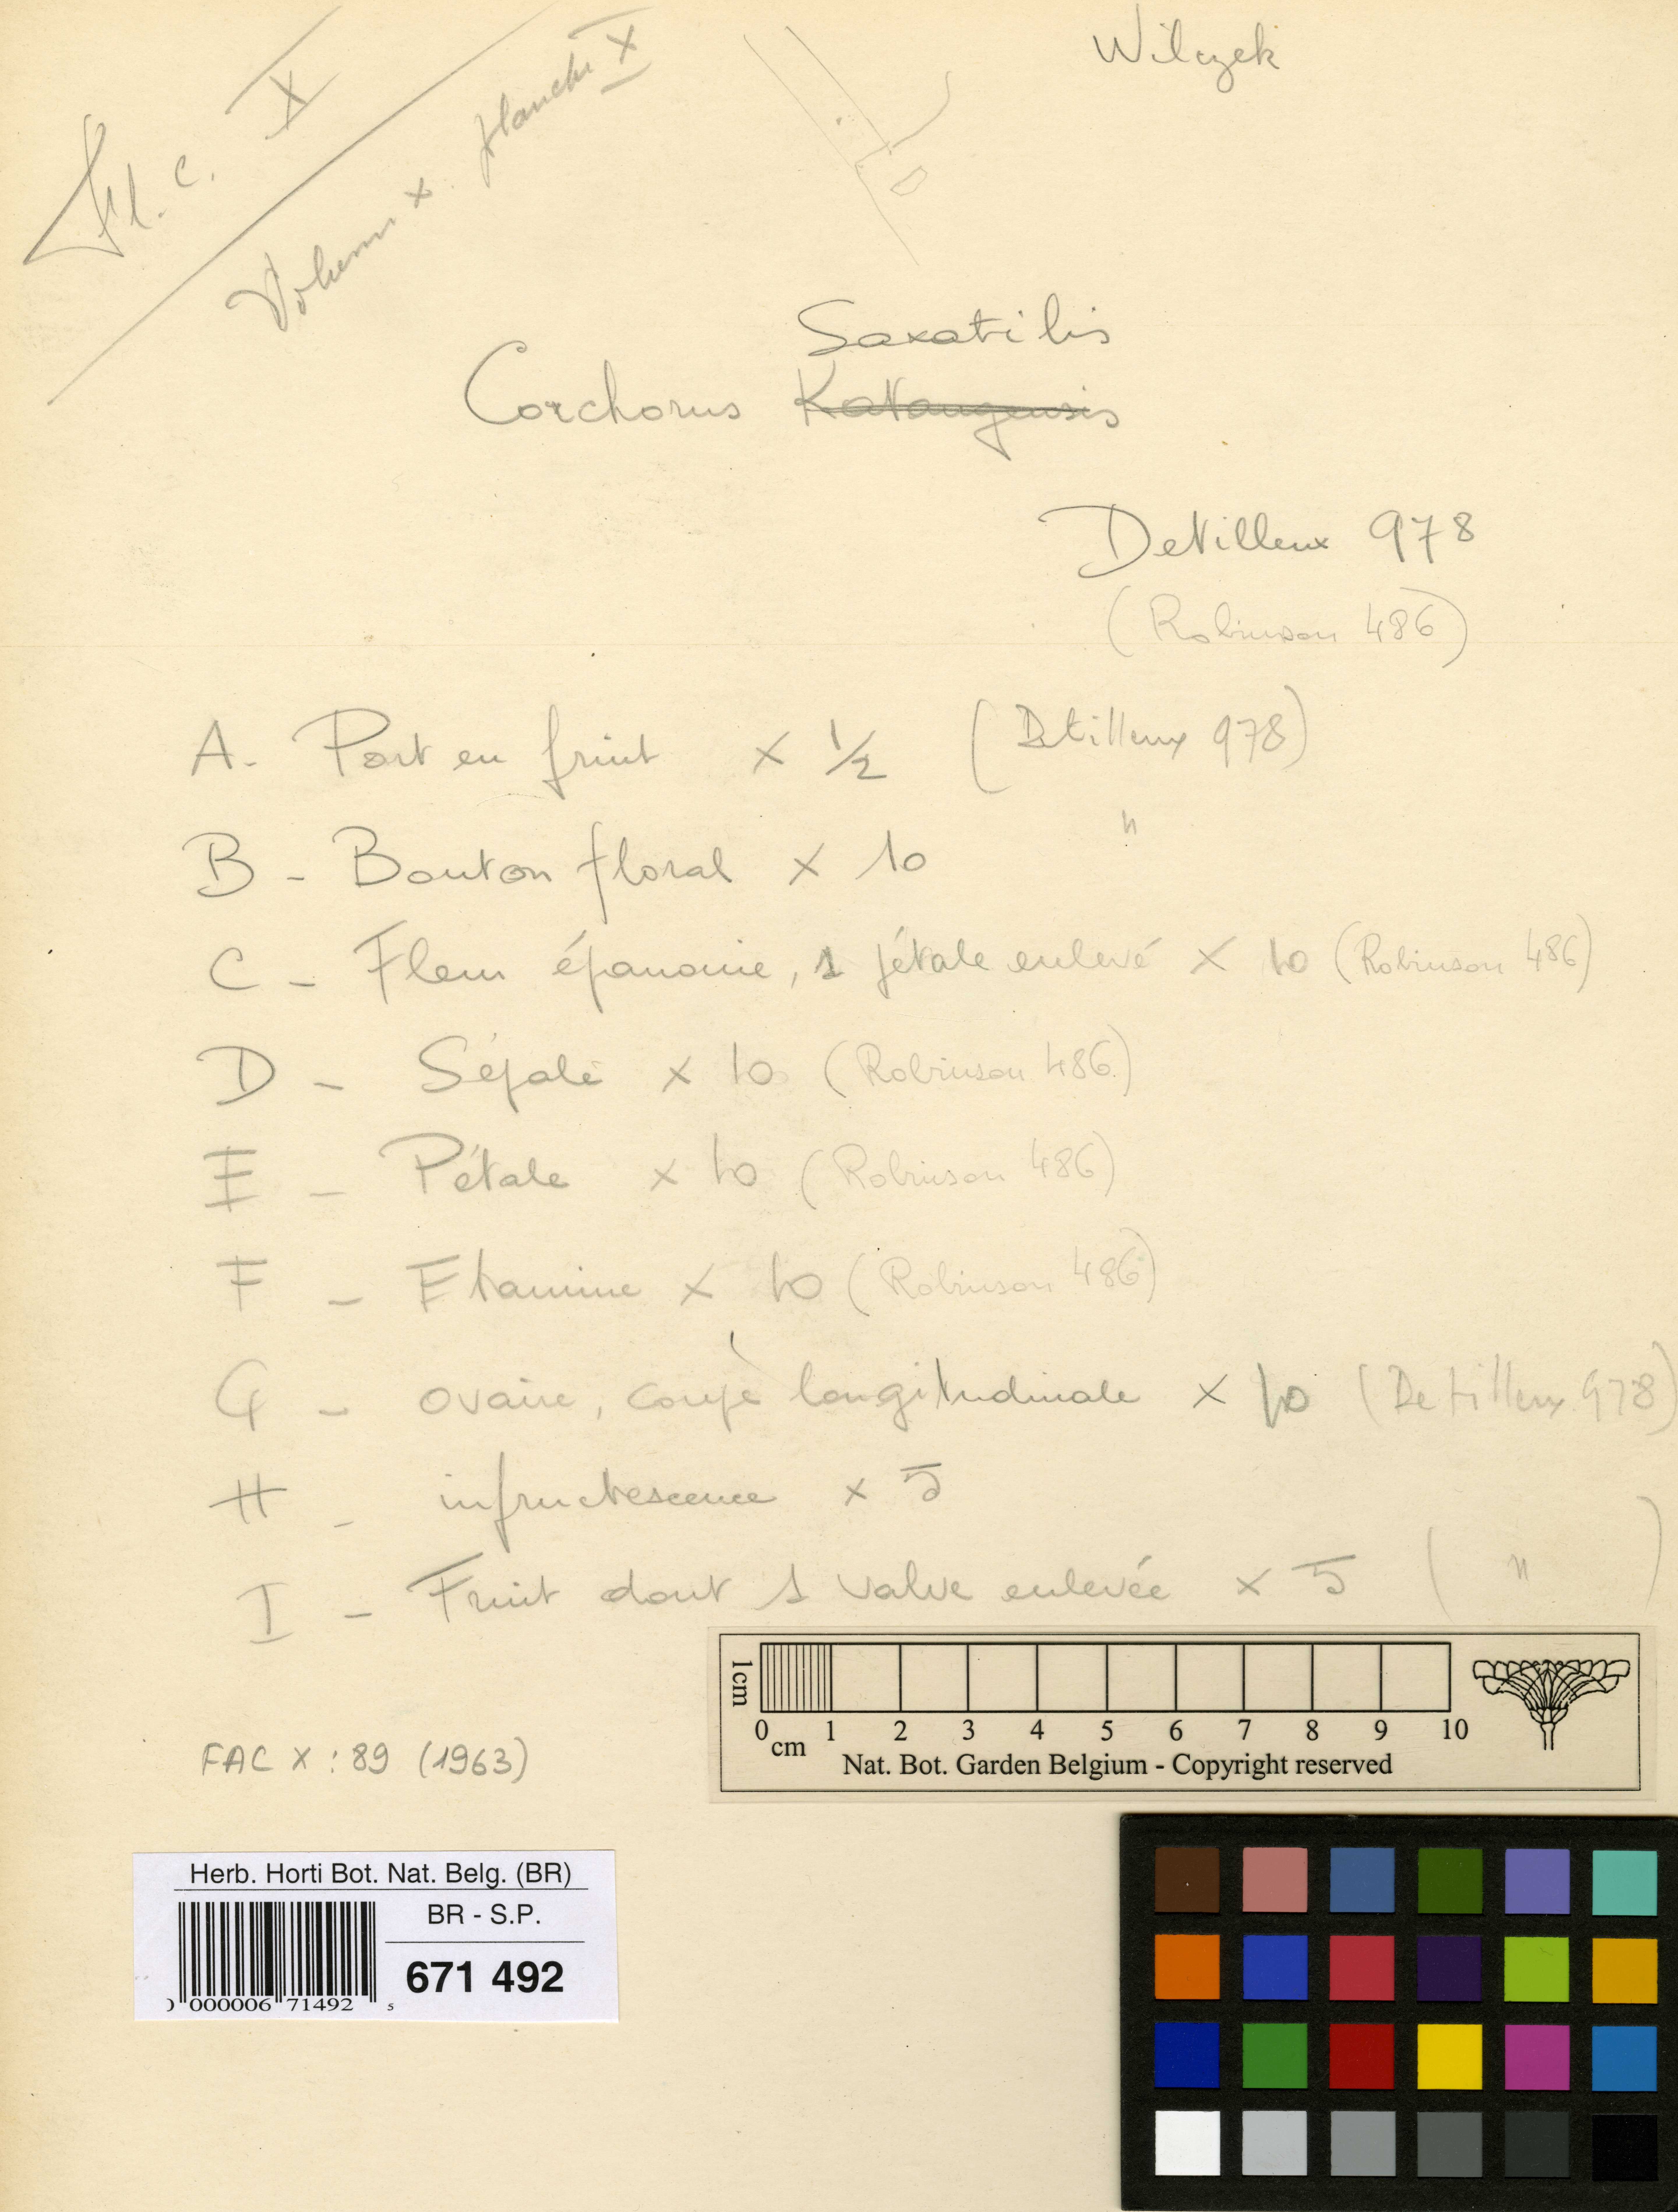 Wilczek
Fl. c. X
Volume X. planche X
Saxatilis
Corchorus Katangensis
Detilleux 978
(Robinson 486)
A. Port en fruit x 1/2 (Detilleux 978)
B - Bouton floral x 10 "
C - Fleur épanouie, 1 pétale enlevé x 10 (Robinson 486)
D - Sépale x 10 (Robinson 486)
E - Pétale x 10 (Robinson 486)
F - Etamine x 10 (Robinson 486)
G - ovaire, coupe longitudinale x 10 (Detilleux 978)
H - infructescence x 5
I - Fruit dont 1 valve enlevée x 5 ( " )
1cm
0 1 2 3 4 5 6 7 8 9 10
cm
Nat. Bot. Garden Belgium - Copyright reserved
FAC X : 89 (1963)
Herb. Horti Bot. Nat. Belg. (BR)
BR - S.P.
671 492
000006 71492